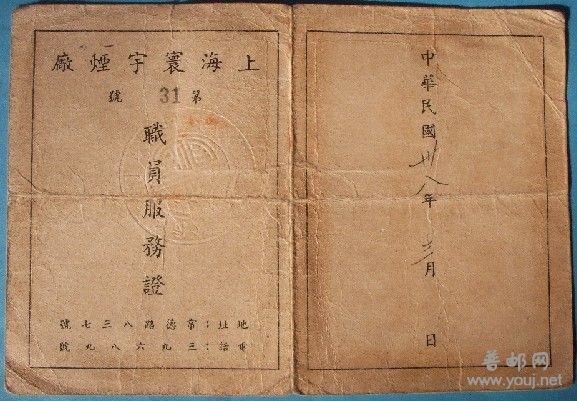 上海寰宇煙廠
第 31 號
職員服務證
地址：常德路八三七號
電話：三九六八九號
中華民國卅八年 月 日
普邮网
www.youj.net